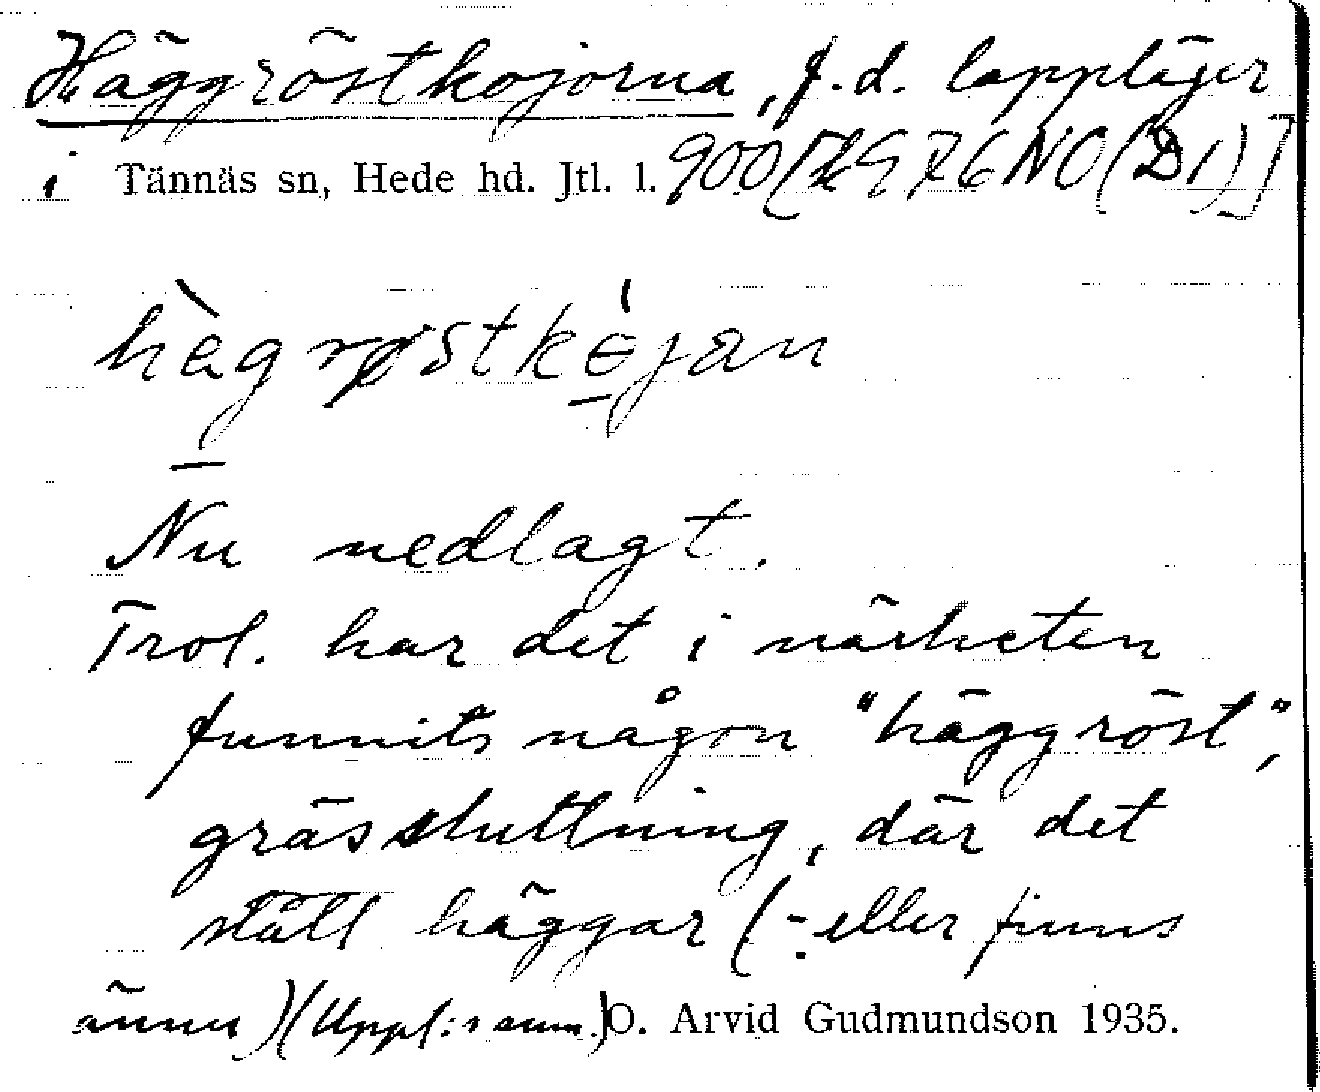 Häggröstkojorna, f.d. lappläger
i Tännäs sn, Hede hd. Jtl. l. 900 [H97 6NO (D1)]
hègrøstkójan
Nu nedlagt.
Trol. har det i närheten
funnits någon "häggröst",
grässluttning, där det
stått häggar (- eller finns
ännu) (Uppl:s anm.) O. Arvid Gudmundson 1935.